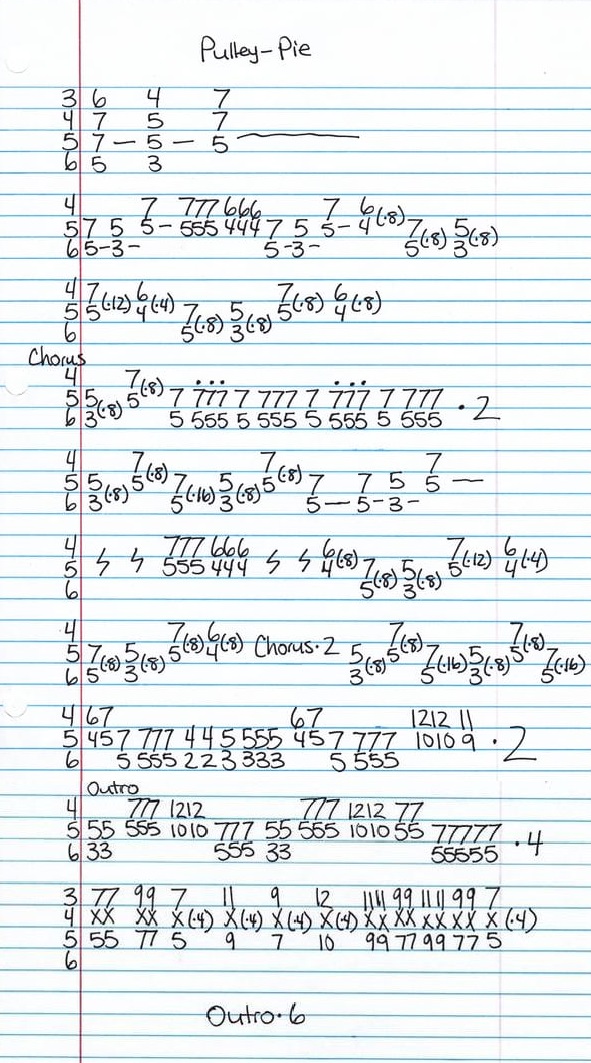 Pulley-Pie
3 6 4 7
4 7 5 7
5 7 — 5 — 5 ———
6 5 3
4 7 777 666 7 6
5 7 5 5- 555 444 7 5 5- 4(·8) 7 5
6 5-3- 5-3- 5(·8) 3(·8)
4 7 6 7 6
5 5(·12) 4(·4) 7 5 5(·8) 4(·8)
6 5(·8) 3(·8)
Chorus
4 7
5 5 5(·8) 7 777 7 777 7 777 7 777 ·2
6 3(·8) 5 555 5 555 5 555 5 555
4 7 7 7
5 5 5(·8) 7 5 5(·8) 7 7 5 5 —
6 3(·8) 5(·16) 3(·8) 5— 5-3-
4 777 666 6 7 6
5 ϟ ϟ 555 444 ϟ ϟ 4(·8) 7 5 5(·12) 4(·4)
6 5(·8) 3(·8)
4 7 6 7 7
5 7 5 5(·8) 4(·8) Chorus·2 5 5(·8) 7 5 5(·8) 7
6 5(·8) 3(·8) 3(·8) 5(·16) 3(·8) 5(·16)
4 67 67 1212 11
5 457 777 44 5 555 457 777 1010 9 ·2
6 5 555 22 3 333 5 555
Outro
4 777 1212 777 1212 77
5 55 555 1010 777 55 555 1010 55 77777 ·4
6 33 555 33 55555
3 77 99 7 11 9 12 1111 99 1111 99 7
4 XX XX X(·4) X(·4) X(·4) X(·4) XX XX XX XX X(·4)
5 55 77 5 9 7 10 99 77 99 77 5
6
Outro·6